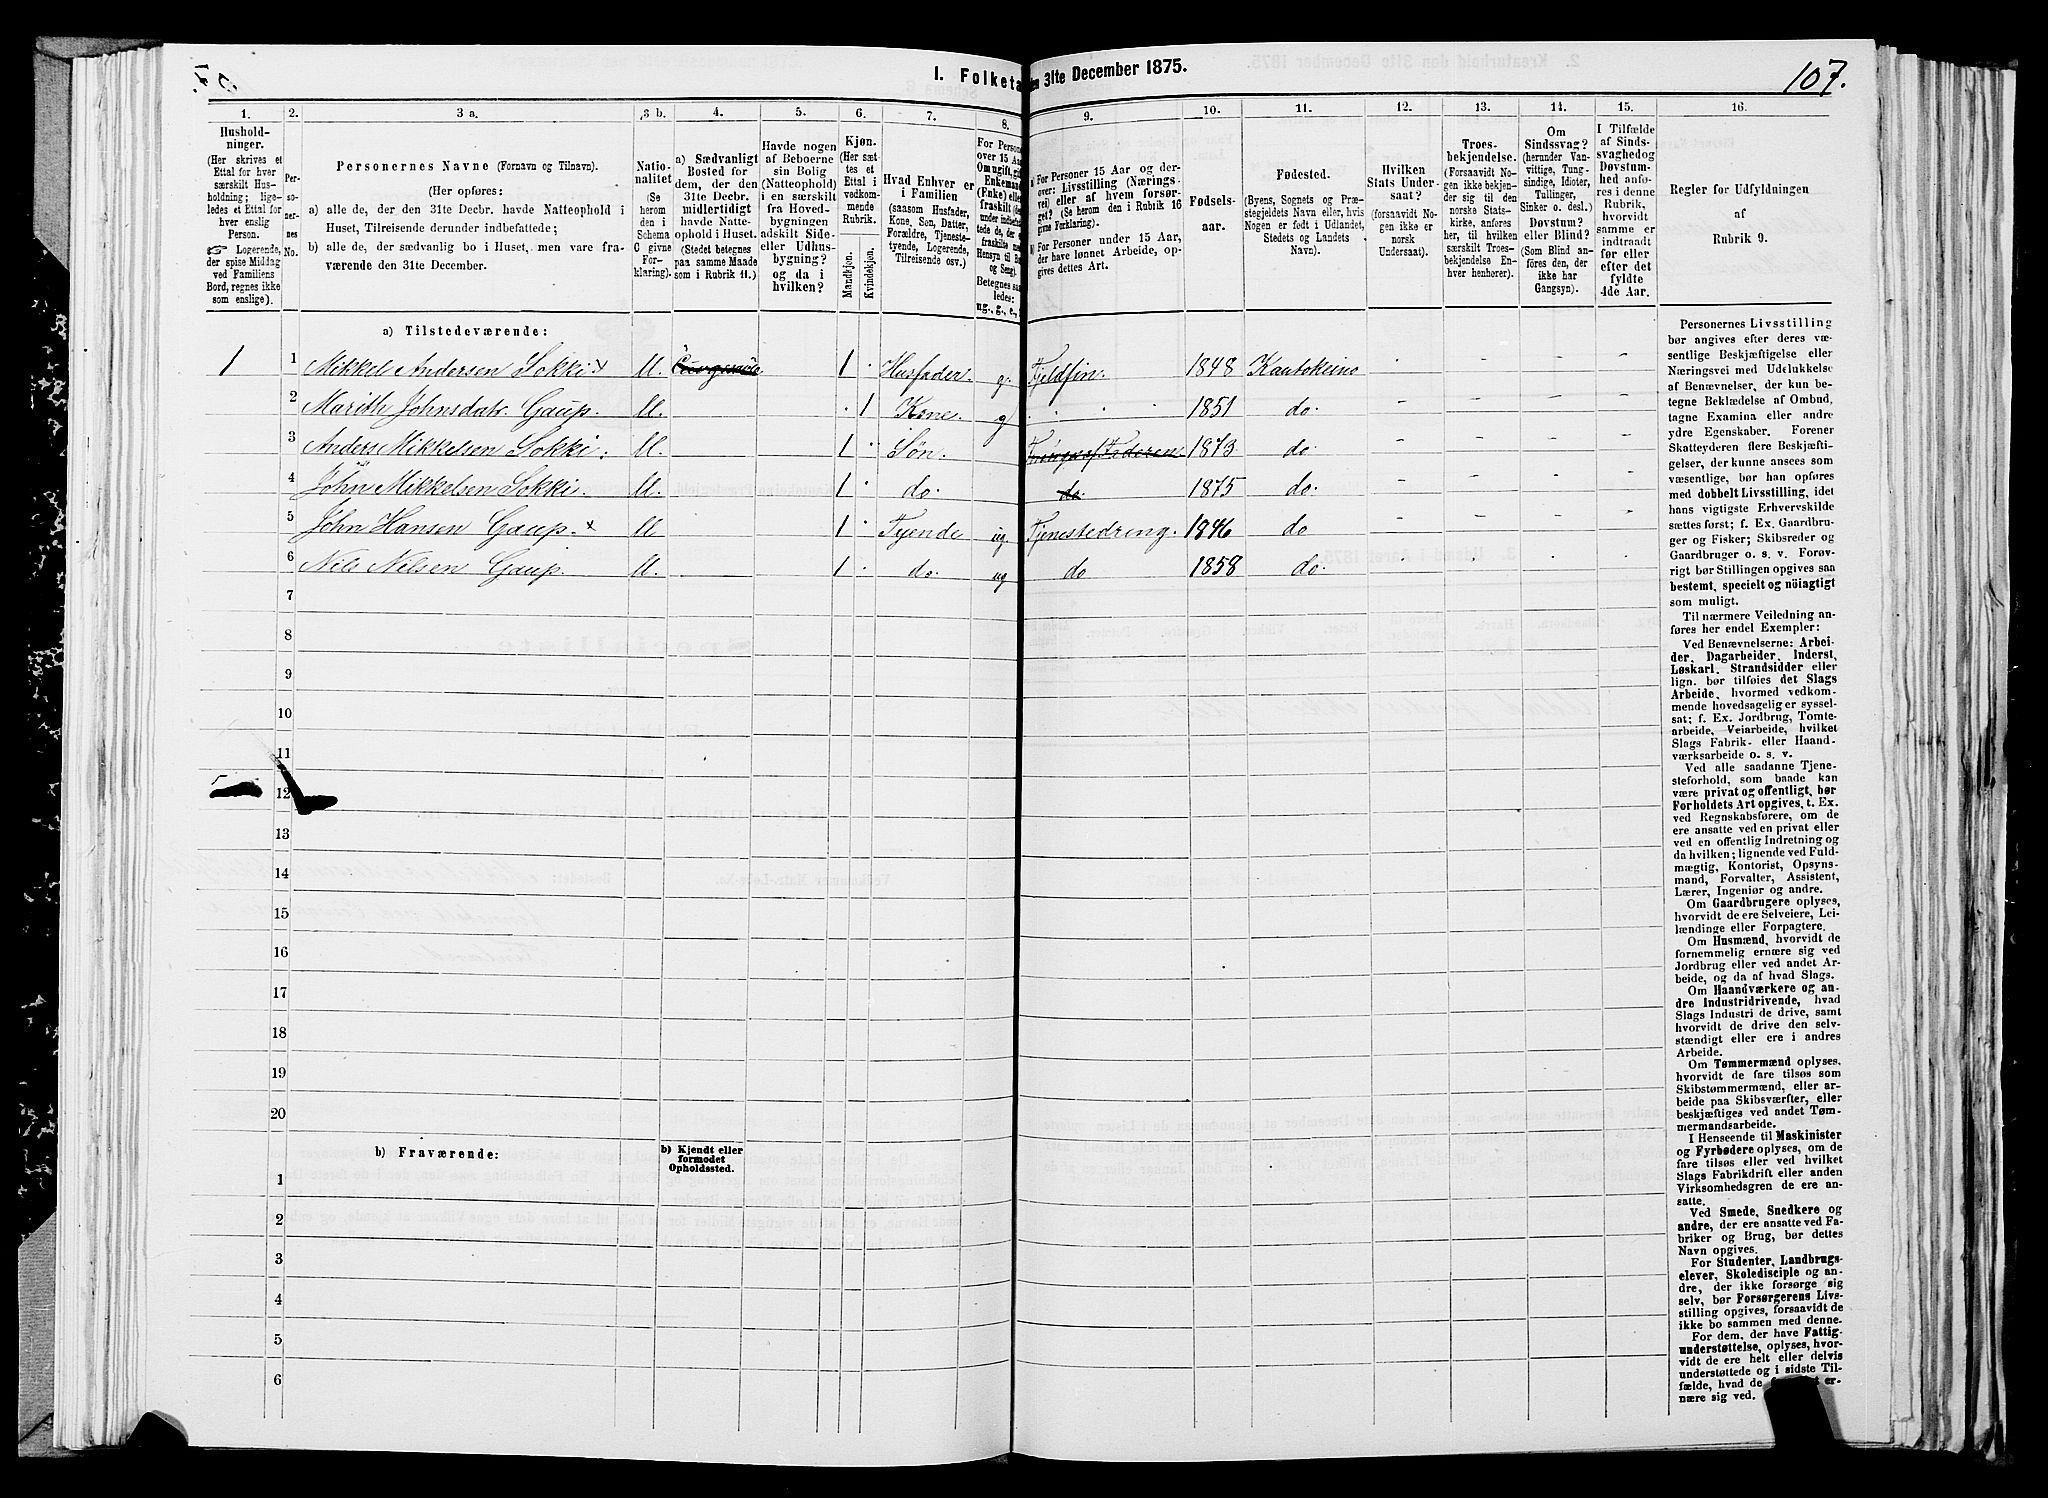 I. Folketæ
en 31te December 1875.
107.
1.
2.
3 a.
3 b.
4.
5.
6.
7.
8.
9.
10.
11.
12.
13.
14.
15.
16.
Hushold-
ninger.
(Her skrives et
Ettal for hver
særskilt Hus-
holdning; lige-
ledes et Ettal for
hver enslig
Person.
☞ Logerende,
der spise Middag
ved Familiens
Bord, regnes ikke
som enslige).
Per-
so-
ner-
nes
No.
Personernes Navne (Fornavn og Tilnavn).
(Her opføres:
a) alle de, der den 31te Decbr. havde Natteophold i
Huset, Tilreisende derunder indbefattede;
b) alle de, der sædvanlig bo i Huset, men vare fra-
værende den 31te December.
Na-
tio-
nalitet
(Se
herom
den i
Schema
C givne
For-
klaring).
a) Sædvanligt
Bosted for
dem, der den
31te Decbr.
midlertidigt
havde Natte-
ophold i Huset.
(Stedet betegnes
paa samme Maade
som i Rubrik 11.)
Havde nogen
af Beboerne
sin Bolig
(Natteophold)
i en særskilt
fra Hoved-
bygningen
adskilt Side-
eller Udhus-
bygning?
og da i
hvilken?
Kjøn.
(Her sæt-
tes et
Ettal i
vedkom-
mende
Rubrik.
Mandkjøn.
Kvindekjøn.
Hvad Enhver er
i Familien
(saasom Husfader,
Kone, Søn, Datter,
Forældre, Tjeneste-
tyende, Logerende,
Tilreisende osv.)
For Persone
over 15 Aar
Om ugift, gif
Enkemand
(Enke) eller
fraskilt
Betegnes saa
ledes:
ug., g., e.,
a) For Personer 15 Aar og der-
over: Livsstilling (Nærings-
vei) eller af hvem forsør-
get? (Se herom den i Rubrik 16
givne Forklaring).
b) For Personer under 15 Aar,
der have lønnet Arbeide, op-
gives dettes Art.
Fødsels-
aar.
Fødested.
(Byens, Sognets og Præ-
stegjeldets Navn eller, hvis
Nogen er født i Udlandet,
Stedets og Landets
Navn).
Hvilken
Stats Under-
saat?
(forsaavidt No-
gen ikke er
norsk
Undersaat).
Troes-
bekjendelse.
(Forsaavidt No-
gen ikke bekjen-
der sig til den
norske Stats-
kirke, anføres
her, til hvilken
særskilt Troes-
bekjendelse En-
hver henhører).
Om
Sindssvag?
(herunder Van-
vittige, Tung-
sindige, Idioter,
Tullinger,
Sinker o. desl.)
Døvstum?
eller Blind?
(Som Blind an-
føres den, der
ikke har
Gangsyn).
I Tilfælde
af Sinds-
svaghed og
Døvstum-
hed anfø-
res i denne
Rubrik,
hvorvidt
samme er
indtraadt
før eller
efter det
fyldte
4de Aar.
Regler for Udfyldningen
af
Rubrik 9.
a) Tilstedeværende:
1 1 Mikkel Andersen Sokki x M. 1 Husfader. g. Fjeldfin. 1848 Kautokeino
2 Marith Johnsdatr. Gaup. M. 1 Kone. g 1851 do.
3 Anders Mikkelsen Sokki. M. 1 Søn. 1873 do.
4 John Mikkelsen Sokki. M. 1 do. do. 1875 do.
5 John Hansen Gaup. x M 1 Tyende ug. Tjenestedreng. 1846 do
6 Nils Nilsen Gaup. M. 1 do. ug do 1858 do.
7
8
9
10
11
12
13
14
15
16
17
18
19
20
b) Fraværende:
b) Kjendt eller
formodet
Opholdssted.
1
2
3
4
5
6
Personernes Livsstilling
bør angives efter deres væ-
sentlige Beskjæftigelse eller
Næringsvei med Udelukkelse
af Benævnelser, der kun be-
tegne Beklædelse af Ombud,
tagne Examina eller andre
ydre Egenskaber. Forener
Skatteyderen flere Beskjæfti-
gelser, der kunne ansees som
væsentlige, bør han opføres
med dobbelt Livsstilling, idet
hans vigtigste Erhvervskilde
sættes først; f. Ex. Gaardbru-
ger og Fisker; Skibsreder og
Gaardbruger o. s. v. Forøv-
rigt bør Stillingen opgives saa
bestemt, specielt og nöiagtigt
som muligt.
Til nærmere Veiledning an-
føres her endel Exempler:
Ved Benævnelserne: Arbei-
der, Dagarbeider, Inderst,
Løskarl, Strandsidder eller
lign. bør tilføies det Slags
Arbeide, hvormed vedkom-
mende hovedsagelig er syssel-
sat; f. Ex. Jordbrug, Tomte-
arbeide, Veiarbeide, hvilket
Slags Fabrik- eller Haand-
værksarbeide o. s. v.
Ved alle saadanne Tjene-
steforhold, som baade kan
være privat og offentligt, bør
Forholdets Art opgives, t. Ex.
ved Regnskabsførere, om de
ere ansatte ved en privat eller
ved en offentlig Indretning og
da hvilken; lignende ved Fuld-
mægtig, Kontorist, Opsyns-
mand, Forvalter, Assistent,
Lærer, Ingeniør og andre.
Om Gaardbrugere oplyses,
hvorvidt de ere Selveiere, Lei-
lændinge eller Forpagtere.
Om Husmænd, hvorvidt de
fornemmelig ernære sig ved
Jordbrug eller ved andet Ar-
beide, og da af hvad Slags.
Om Haandværkere og an-
dre Industridrivende, hvad
Slags Industri de drive, samt
hvorvidt de drive den selv-
stændigt eller ere i andres
Arbeide.
Om Tømmermænd oplyses,
hvorvidt de fare tilsøs som
Skibstømmermænd, eller ar-
beide paa Skibsværfter, eller
beskjæftiges ved andet Tøm-
mermandsarbeide.
I Henseende til Maskinister
og Fyrbødere oplyses, om de
fare tilsøs eller ved hvilket
Slags Fabrikdrift eller anden
Virksomhedsgren de ere an-
satte.
Ved Smede, Snedkere og
andre, der ere ansatte ved Fa-
briker og Brug, bør dettes
Navn opgives.
For Studenter, Landbrugs-
elever, Skoledisciple og an-
dre, der ikke forsørge sig
selv, bør Forsørgerens Livs-
stilling opgives, forsaavidt de
ikke bo sammen med denne.
For dem, der have Fattig-
understøttelse, oplyses, hvor-
vidt de ere helt eller delvis
understøttede og i sidste Til-
fælde, hvad de er-
nære sig ved.